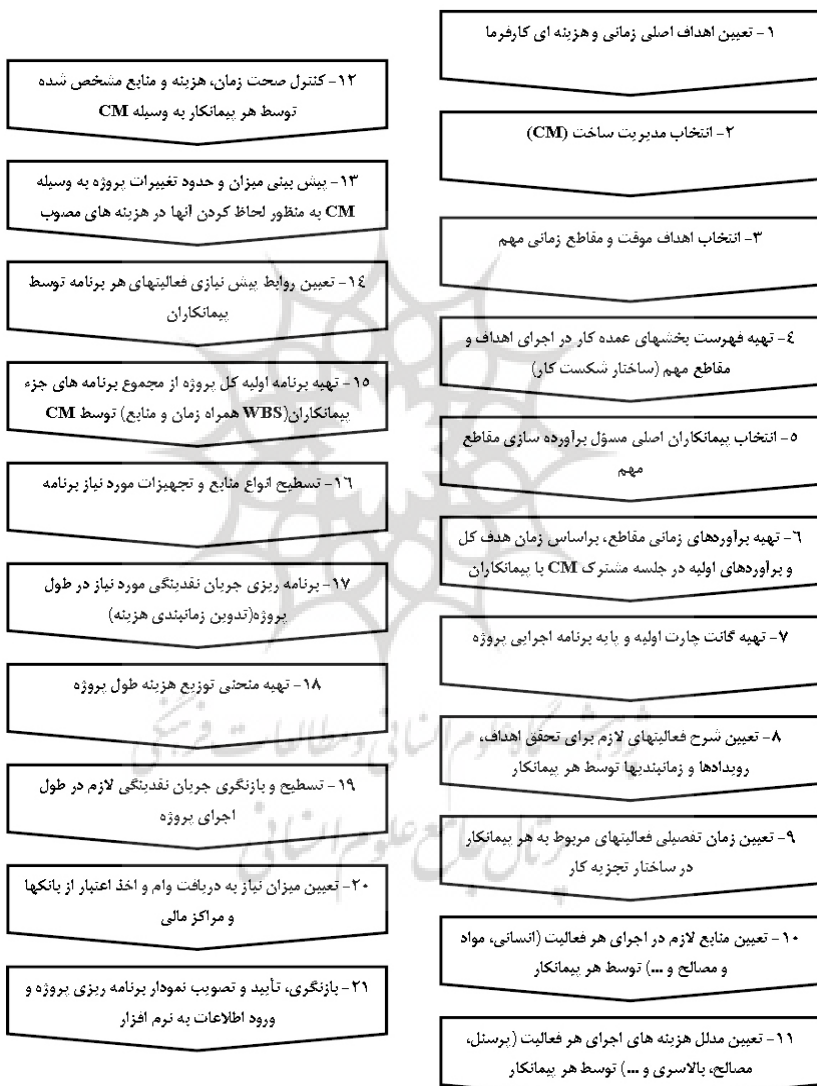 ۱- تعیین اهداف اصلی زمانی و هزینه ای کارفرما
۲- انتخاب مدیریت ساخت (CM)
۳- انتخاب اهداف موقت و مقاطع زمانی مهم
۴- تهیه فهرست بخشهای عمده کار در اجرای اهداف و
مقاطع مهم (ساختار شکست کار)
۵- انتخاب پیمانکاران اصلی مسؤل برآورده سازی مقاطع
مهم
۶- تهیه برآوردهای زمانی مقاطع، براساس زمان هدف کل
و برآوردهای اولیه در جلسه مشترک CM با پیمانکاران
۷- تهیه گانت چارت اولیه و پایه برنامه اجرایی پروژه
۸- تعیین شرح فعالیتهای لازم برای تحقق اهداف،
رویدادها و زمانبندیها توسط هر پیمانکار
۹- تعیین زمان تفصیلی فعالیتهای مربوط به هر پیمانکار
در ساختار تجزیه کار
۱۰- تعیین منابع لازم در اجرای هر فعالیت (انسانی، مواد
و مصالح و ...) توسط هر پیمانکار
۱۱- تعیین مدلل هزینه های اجرای هر فعالیت (پرسنل،
مصالح، بالاسری و ...) توسط هر پیمانکار
۱۲- کنترل صحت زمان، هزینه و منابع مشخص شده
توسط هر پیمانکار به وسیله CM
۱۳- پیش بینی میزان و حدود تغییرات پروژه به وسیله
CM به منظور لحاظ کردن آنها در هزینه های مصوب
۱۴- تعیین روابط پیش نیازی فعالیتهای هر برنامه توسط
پیمانکاران
۱۵- تهیه برنامه اولیه کل پروژه از مجموع برنامه های جزء
پیمانکاران(WBS همراه زمان و منابع) توسط CM
۱۶- تسطیح انواع منابع و تجهیزات مورد نیاز برنامه
۱۷- برنامه ریزی جریان نقدینگی مورد نیاز در طول
پروژه(تدوین زمانبندی هزینه)
۱۸- تهیه منحنی توزیع هزینه طول پروژه
۱۹- تسطیح و بازنگری جریان نقدینگی لازم در طول
اجرای پروژه
۲۰- تعیین میزان نیاز به دریافت وام و اخذ اعتبار از بانکها
و مراکز مالی
۲۱- بازنگری، تأیید و تصویب نمودار برنامه ریزی پروژه و
ورود اطلاعات به نرم افزار
پژوهشگاه علوم انسانی و مطالعات فرهنگی
پرتال جامع علوم انسانی